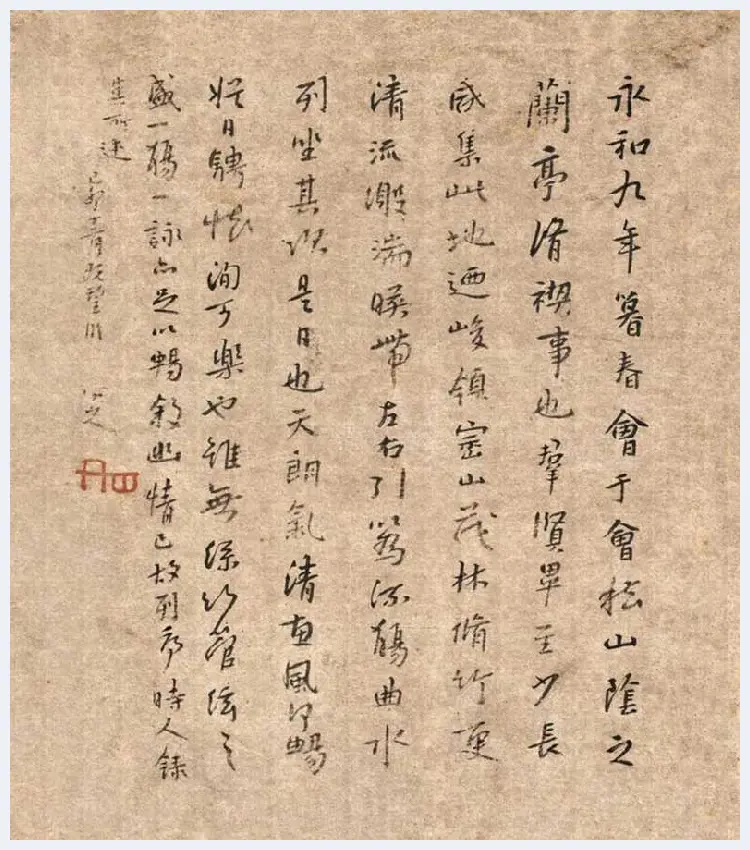 永和九年暮春會于會嵇山陰之
蘭亭脩禊事也羣賢畢至少長
咸集此地迺峻領崇山茂林脩竹更
清流激湍暎帶左右引以為流觴曲水
列坐其次是日也天朗氣清惠風和暢
娛目騁懷洵可樂也雖無絲竹管絃之
盛一觴一詠亦足以暢敘幽情已故列序時人錄
其所述 己卯 既望